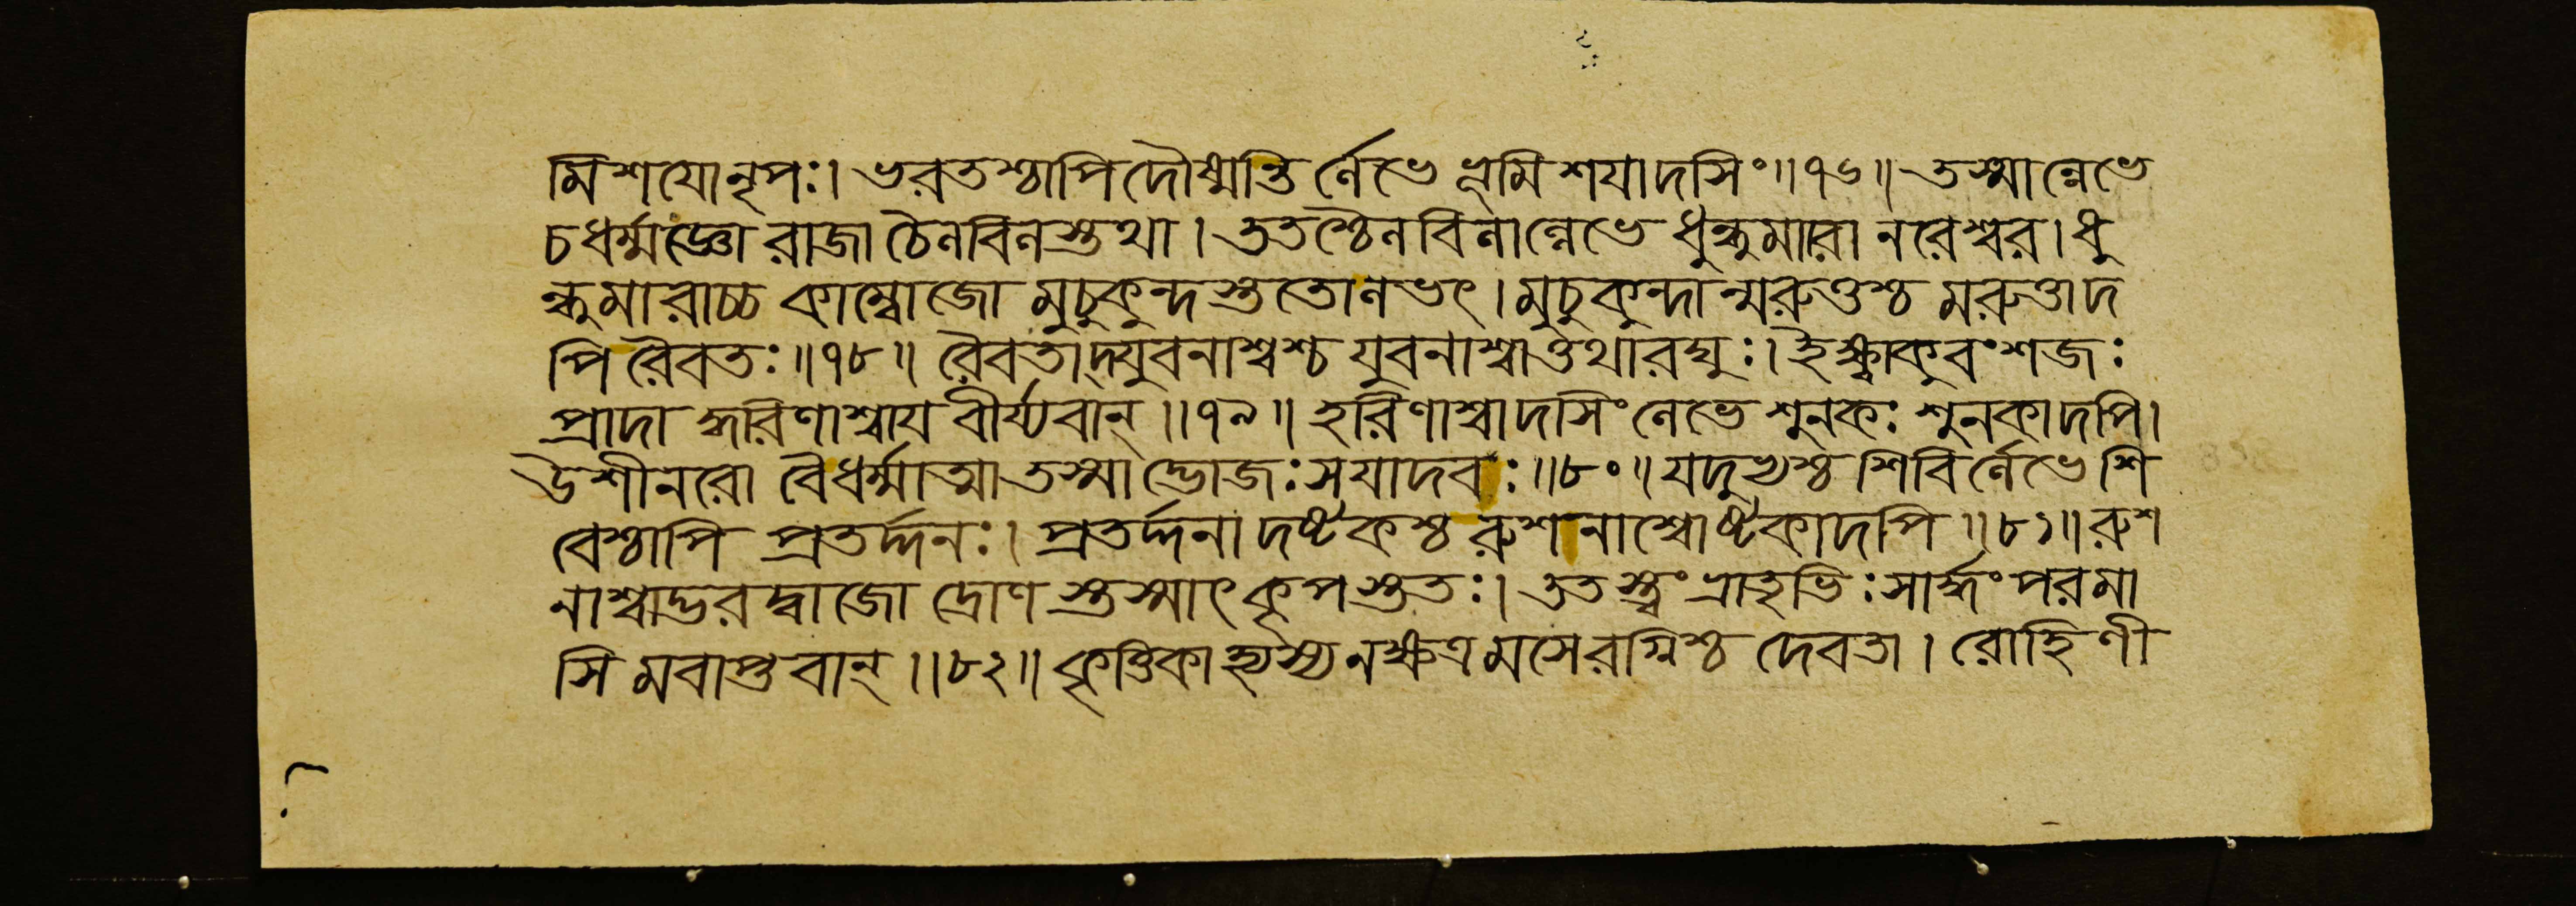 মিশযো নৃপঃ। ভরতশ্চাপি দৌষ্মন্তি র্ল্লেভে ভূমিশযাদসিং॥৭৬॥ তস্মাল্লেভে
চ ধর্ম্মজ্ঞো রাজা ঠৈনবিনস্তথা। ততশ্চৈনবিনাল্লেভে ধুন্ধুমারা নরেশ্বর। ধু
ন্ধুমারাচ্চ কাম্বোজো মুচুকুন্দস্ততোলভৎ। মুচুকুন্দান্মরুত্তশ্চ মরুত্তাদ
পি রৈবতঃ॥৭৮॥ রৈবতাদ্যুবনাশ্বশ্চ যুবনাশ্বাত্তথা রঘুঃ। ইক্ষ্বাকুবংশজঃ
প্রাদাদ্ধরিণাশ্বায বীর্য্যবান্॥৭৯॥ হরিণাশ্বাদসিং লেভে শুনকঃ শুনকাদপি।
উশীনরো বৈ ধর্ম্মাত্মা তস্মাদ্ভোজঃ স যাদবঃ॥৮০॥ যদুভ্যশ্চ শিবির্ল্লেভে শি
বেশ্চাপি প্রতর্দ্দনঃ। প্রতর্দ্দনাদষ্টকশ্চ রুশনাশ্বোষ্টকাদপি॥৮১॥ রুশ
নাশ্বাদ্ভরদ্বাজো দ্রোণস্তস্মাৎ কৃপস্ততঃ। ততস্ত্বং ভ্রাতৃভিঃ সার্দ্ধং পরমা
সিমবাপ্তবান্॥৮২॥ কৃত্তিকাহ্যস্য নক্ষত্রমসেরগ্নিশ্চ দেবতা। রোহিণী